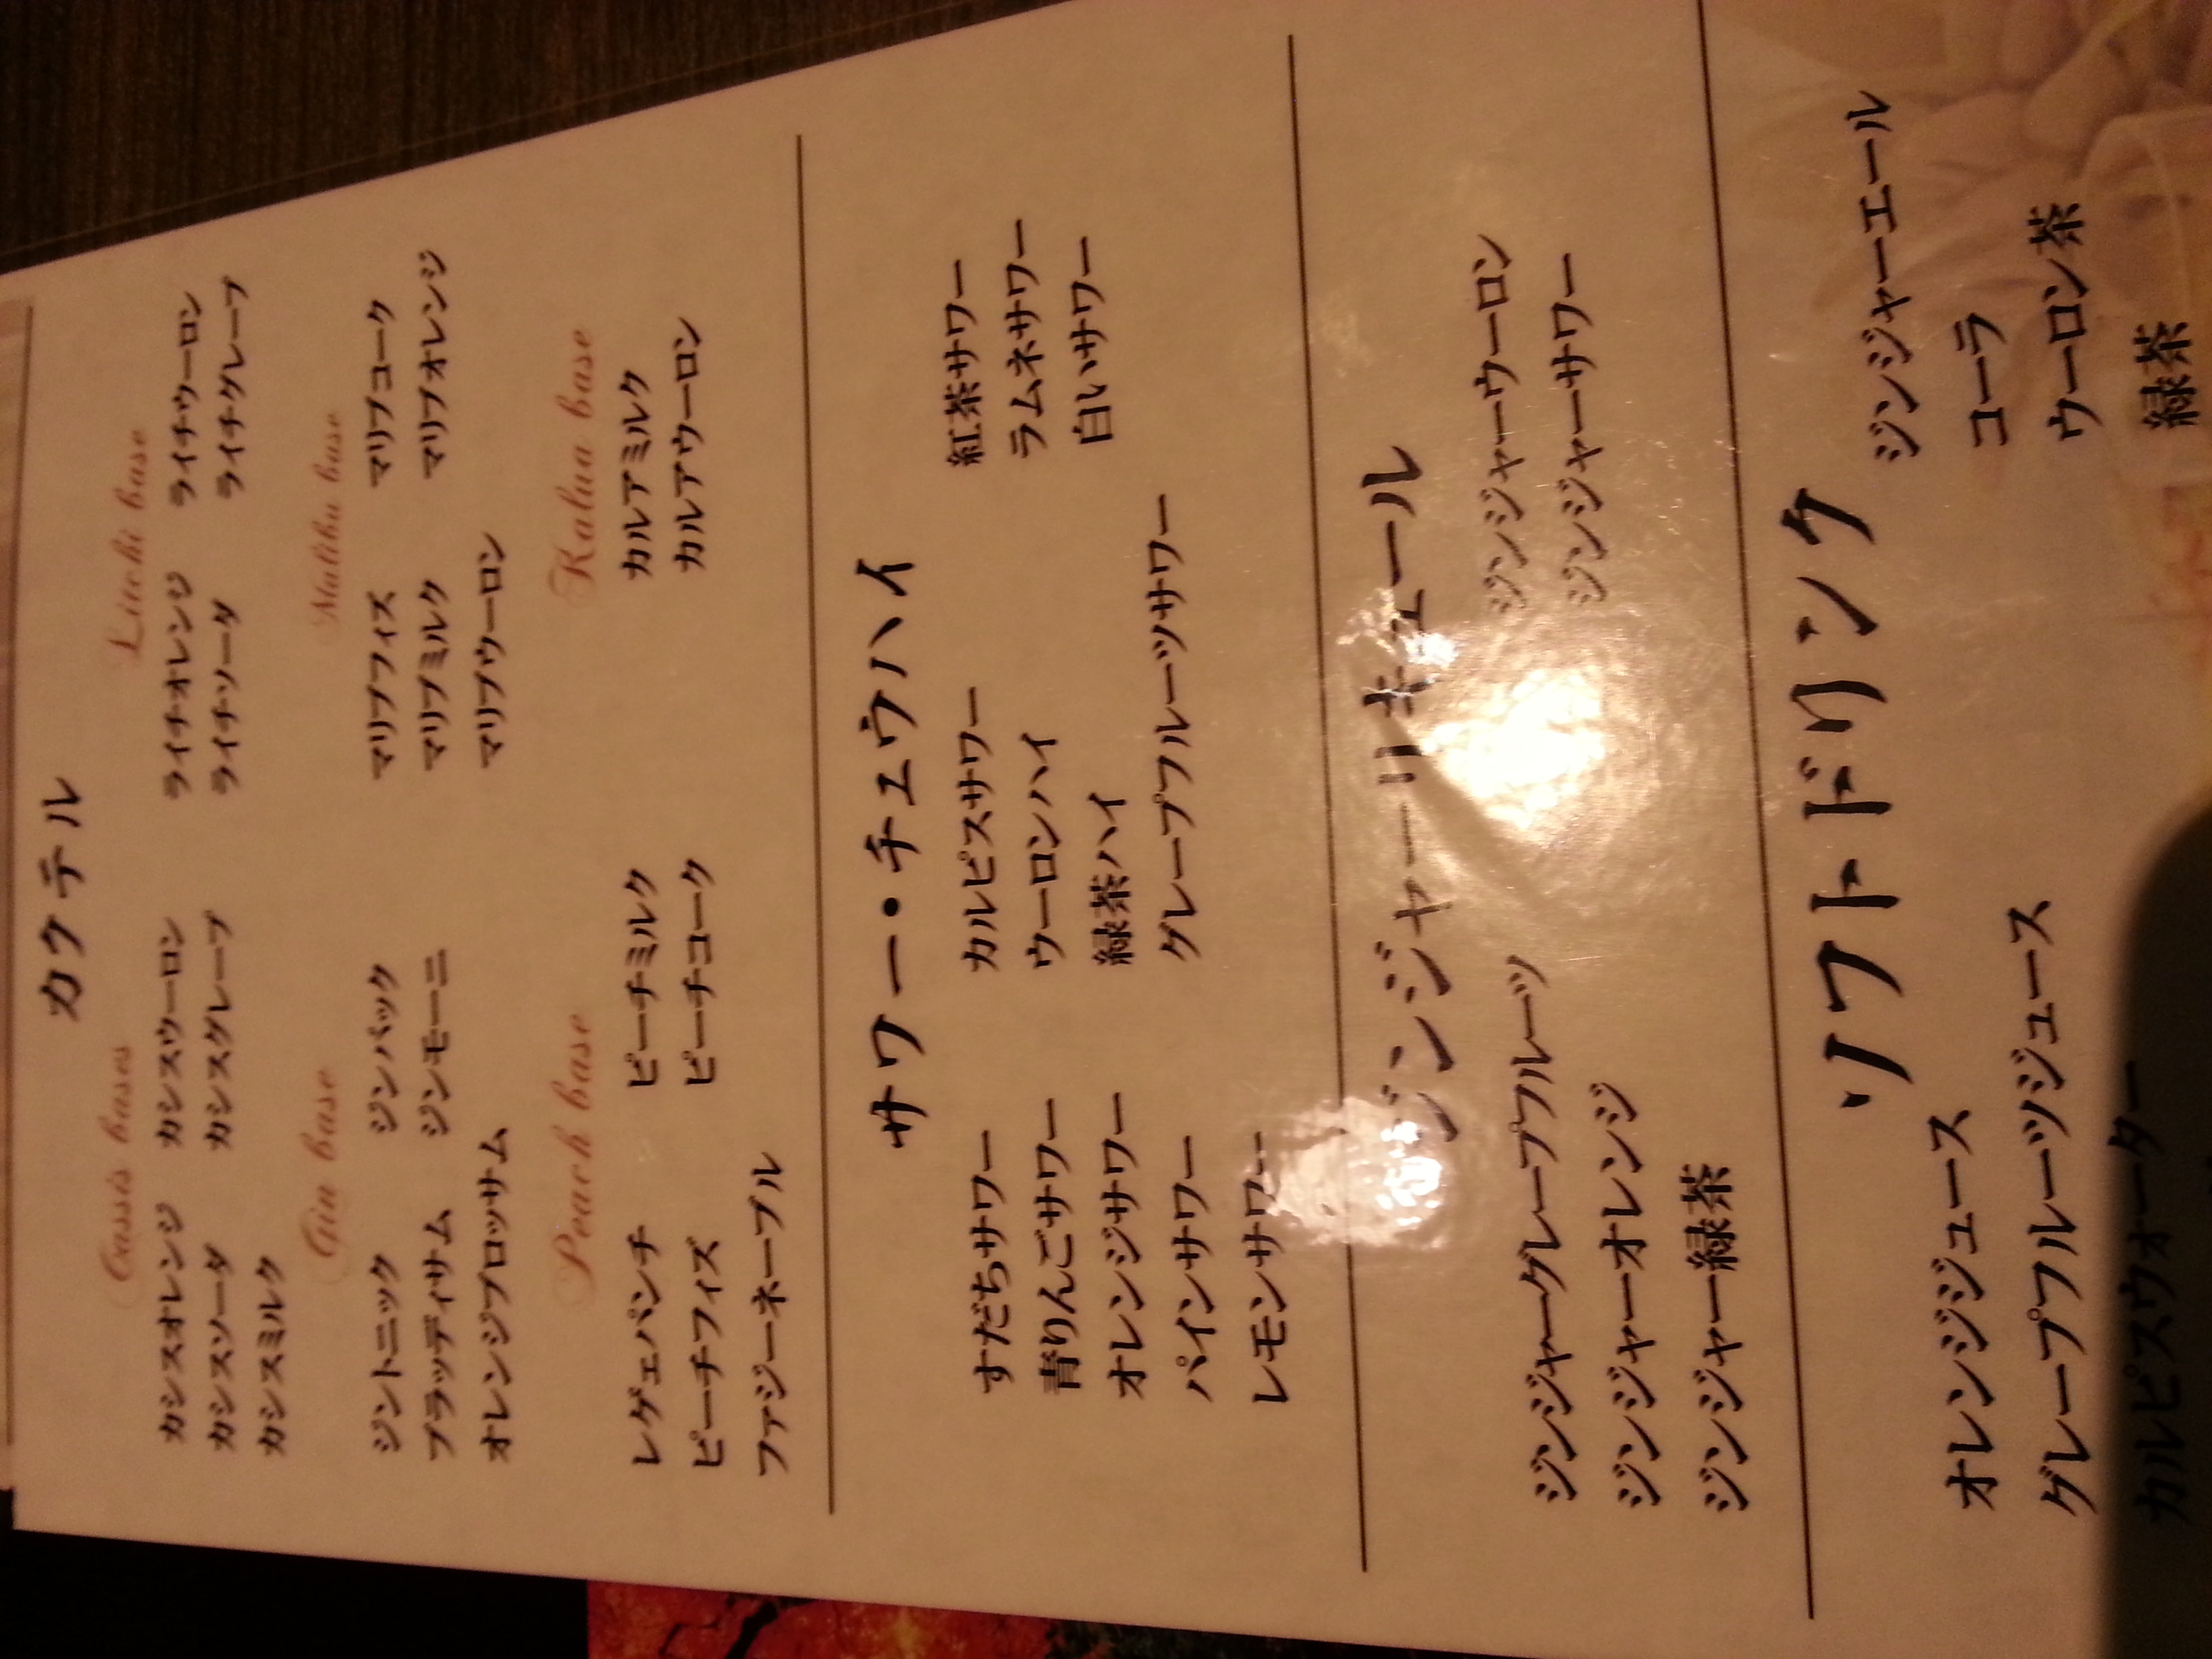 カクテル
Cassis bases
Lichi base
カシスオレンジ カシスウーロン ライチオレンジ ライチウーロン
カシスソーダ カシスグレープ ライチソーダ ライチグレープ
カシスミルク
Gin base
Malibu base
ジントニック ジンバック マリブフィズ マリブコーク
ブラッディサム ジンモーニ マリブミルク マリブオレンジ
オレンジブロッサム マリブウーロン
Peach base
Kalua base
レゲェパンチ ピーチミルク カルアミルク
ピーチフィズ ピーチコーク カルアウーロン
ファジーネーブル
サワー・チュウハイ
すだちサワー カルピスサワー 紅茶サワー
青りんごサワー ウーロンハイ ラムネサワー
オレンジサワー 緑茶ハイ 白いサワー
パインサワー グレープフルーツサワー
レモンサワー
ジンジャーリキュール
ジンジャーグレープフルーツ ジンジャーウーロン
ジンジャーオレンジ ジンジャーサワー
ジンジャー緑茶
ソフトドリンク
オレンジジュース ジンジャーエール
グレープフルーツジュース コーラ
カルピスウォーター ウーロン茶
緑茶